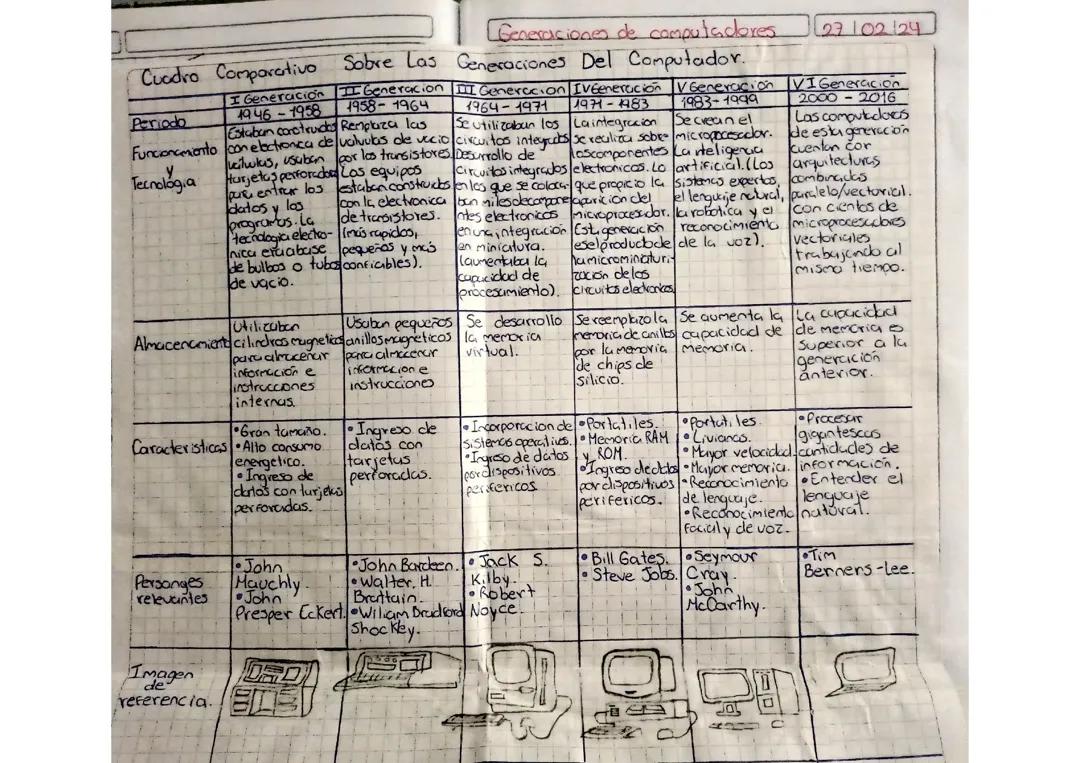 Generaciones de computadores
27/02/24
Cuadro Comparativo Sobre Las Generaciones Del Computador.
I Generación
1946 - 1958
II Generacion
1958 - 1964
III Generacion
1964 - 1971
IV Generación
1971 - 1983
V Generación
1983-1999
VI Generación
2000 - 2016
Periodo
Funcionamiento
y
Tecnologia
Estaban construidos
con electronica de
valvulas, usaban
tarjetas perforadas
para entrar los
datos y los
programas. La
tecnologia electro-
nica era a base
de bulbos o tubos
de vacio.
Remplaza las
valvulas de vacio
por los transistores.
Los equipos
estaban construidos
con la electronica
de transistores.
(más rapidos,
pequeños y más
confiables).
Se utilizaban los
circuitos integrados
Desarrollo de
circuitos integrados
en los que se coloca-
ban miles de compone
ntes electronicos
en una, integración
en miniatura.
(aumentaba la
capacidad de
procesamiento).
La integración
se realiza sobre
los componentes
electronicos. Lo
que propicio la
aparicion del
microprocesador.
Esta generación
es el producto de
la microminiaturi-
zación de los
circuitos electronicos
Se crean el
microprocesador.
La inteligencia
artificial. (Los
sistemas expertos,
el lenguaje natural,
la robotica y el
reconocimiento
de la voz).
Las computadoras
de esta generación
cuentan con
arquitecturas
combinadas
paralelo/vectorial.
con cientos de
microprocesadores
vectoriales
trabajando al
mismo tiempo.
Almacenamiento
Utilizaban
cilindros magneticos
para almacenar
información e
instrucciones
internas.
Usaban pequeños
anillos magneticos
para almacenar
información e
instrucciones
Se desarrollo
la memoria
virtual.
Se reemplazo la
memoria de anillos
por la memoria
de chips de
silicio.
Se aumenta la
capacidad de
memoria.
La capacidad
de memoria es
superior a la
generación
anterior.
Caracteristicas
• Gran tamaño.
• Alto consumo
energetico.
• Ingreso de
datos con tarjetas
perforadas.
• Ingreso de
datos con
tarjetas
perforadas.
• Incorporacion de
sistemas operativos.
• Ingreso de datos
por dispositivos
perifericos
• Portatiles.
• Memoria RAM
y ROM.
• Ingreso de datos
por dispositivos
perifericos.
• Portatiles.
• Livianos.
• Mayor velocidad.
• Mayor memoria.
• Reconocimiento
de lenguaje.
• Reconocimiento
facial y de voz.
• Procesar
gigantescas
cantidades de
información.
• Entender el
lenguaje
natural.
Personajes
relevantes
• John
Mauchly.
• John
Presper Eckert.
• John Bardeen.
• Walter. H.
Brattain.
• Wiliam Bradford
Shockley.
• Jack S.
Kilby.
• Robert
Noyce.
• Bill Gates.
• Steve Jobs.
• Seymour
Cray.
• John
McCarthy.
• Tim
Berners-Lee.
Imagen
de
referencia.